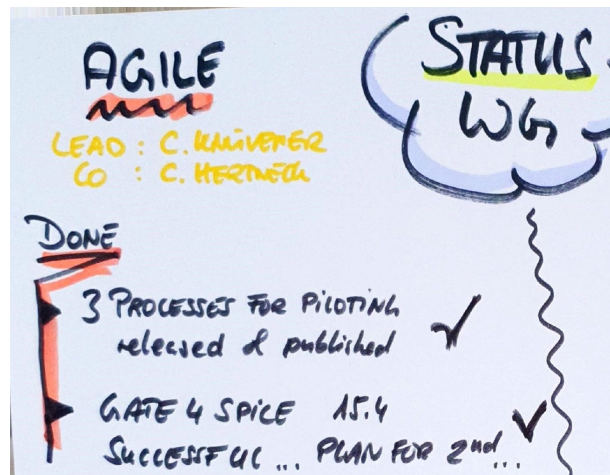 AGILE
STATUS
WG
LEAD : C. KNÜVENER
CO : C. HERTNECK
DONE
3 PROCESSES FOR PILOTING
released & published
GATE 4 SPICE 15.4
SUCCESSFUL ... PLAN FOR 2nd ...